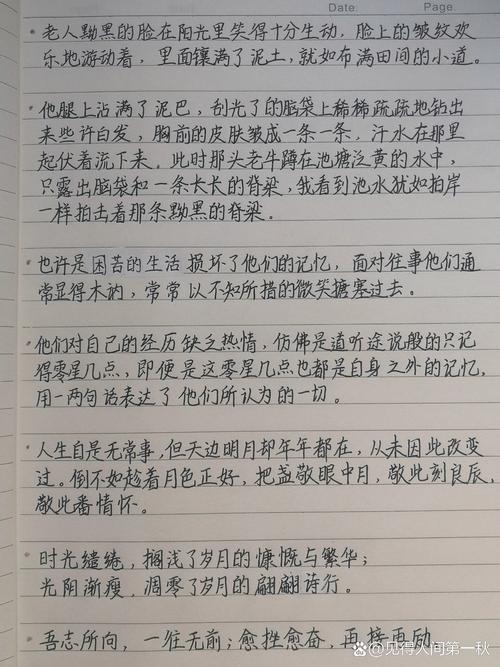 Date: Page.
· 老人黝黑的脸在阳光里笑得十分生动，脸上的皱纹欢
乐地游动着，里面镶满了泥土，就如布满田间的小道。
· 他腿上沾满了泥巴，刮光了的脑袋上稀稀疏疏地钻出
来些许白发，胸前的皮肤皱成一条一条，汗水在那里
起伏着流下来。此时那头老牛蹲在池塘泛黄的水中，
只露出脑袋和一条长长的脊梁，我看到池水犹如拍岸
一样拍击着那条黝黑的脊梁。
· 也许是困苦的生活损坏了他们的记忆，面对往事他们通
常显得木讷，常常以不知所措的微笑搪塞过去。
· 他们对自己的经历缺乏热情，仿佛是道听途说般的只记
得零星几点，即便是这零星几点也都是自身之外的记忆，
用一两句话表达了他们所认为的一切。
· 人生自是无常事，但天边明月却年年都在，从未因此改变
过。倒不如趁着月色正好，把盏敬眼中月，敬此刻良辰，
敬此番情怀。
· 时光缱绻，搁浅了岁月的慷慨与繁华；
光阴渐瘦，凋零了岁月的翩翩诗行。
· 吾志所向，一往无前；愈挫愈奋，再接再励。
头条 @见得人间第一秋